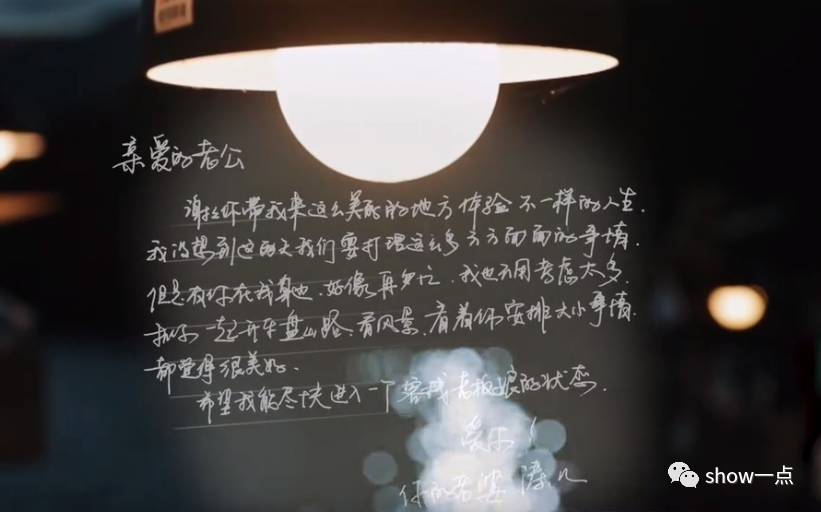 亲爱的老公
谢谢你带我来这么美丽的地方体验不一样的人生.
我没想到这两天我们要打理这么多方方面面的事情.
但是有你在我身边.好像再多忙.我也不用考虑太多.
和你一起开车盘山路、看风景.看着你安排大小事情.
都觉得很美好.
希望我能尽快进入一个客栈老板娘的状态.
爱你!
你的老婆
show一点